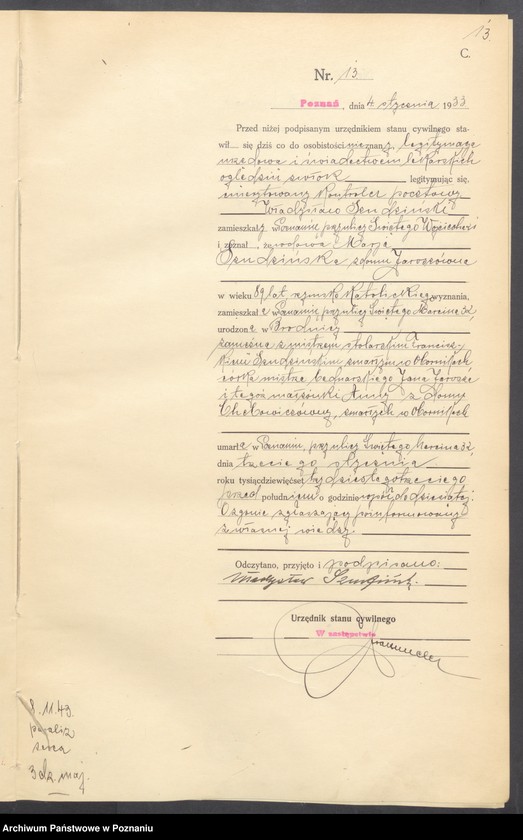 13
C.
Nr. 13
Poznań, dnia 4 stycznia 1933
Przed niżej podpisanym urzędnikiem stanu cywilnego sta-
wił się dziś co do osobistości nieznany, legitymacją
urzędową i świadectwem lekarskich
oględzin zwłok legitymując się,
emerytowany kontroler pocztowy
Władysław Szudziński
zamieszkały w Poznaniu przy ulicy Świętego Wojciecha
i zeznał, że wdowa Marja
Szudzińska z domu Jaroszówna
w wieku 89 lat, rzymsko katolickiego wyznania,
zamieszkała w Poznaniu przy ulicy Świętego Marcina 32,
urodzona w Brodnicy
zamężna z mistrzem stolarskim Francisz-
kiem Szudzińskim zmarłym w Obornikach
córka mistrza bednarskiego Jana Jarosza
i tegoż małżonki Anny z domu
zmarłych w Obornikach
umarła w Poznaniu, przy ulicy Świętego Marcina 32,
dnia trzeciego stycznia
roku tysiącdziewięćset trzydziestego trzeciego
przed południem o godzinie wpół do dziesiątej.
O zgonie zgłaszający poinformowany
z własnej wiedzy.
Odczytano, przyjęto i podpisano:
Władysław Szudziński.
Urzędnik stanu cywilnego
W zastępstwie
8.11.43.
paraliż
serca
3 dz. maj.
Archiwum Państwowe w Poznaniu